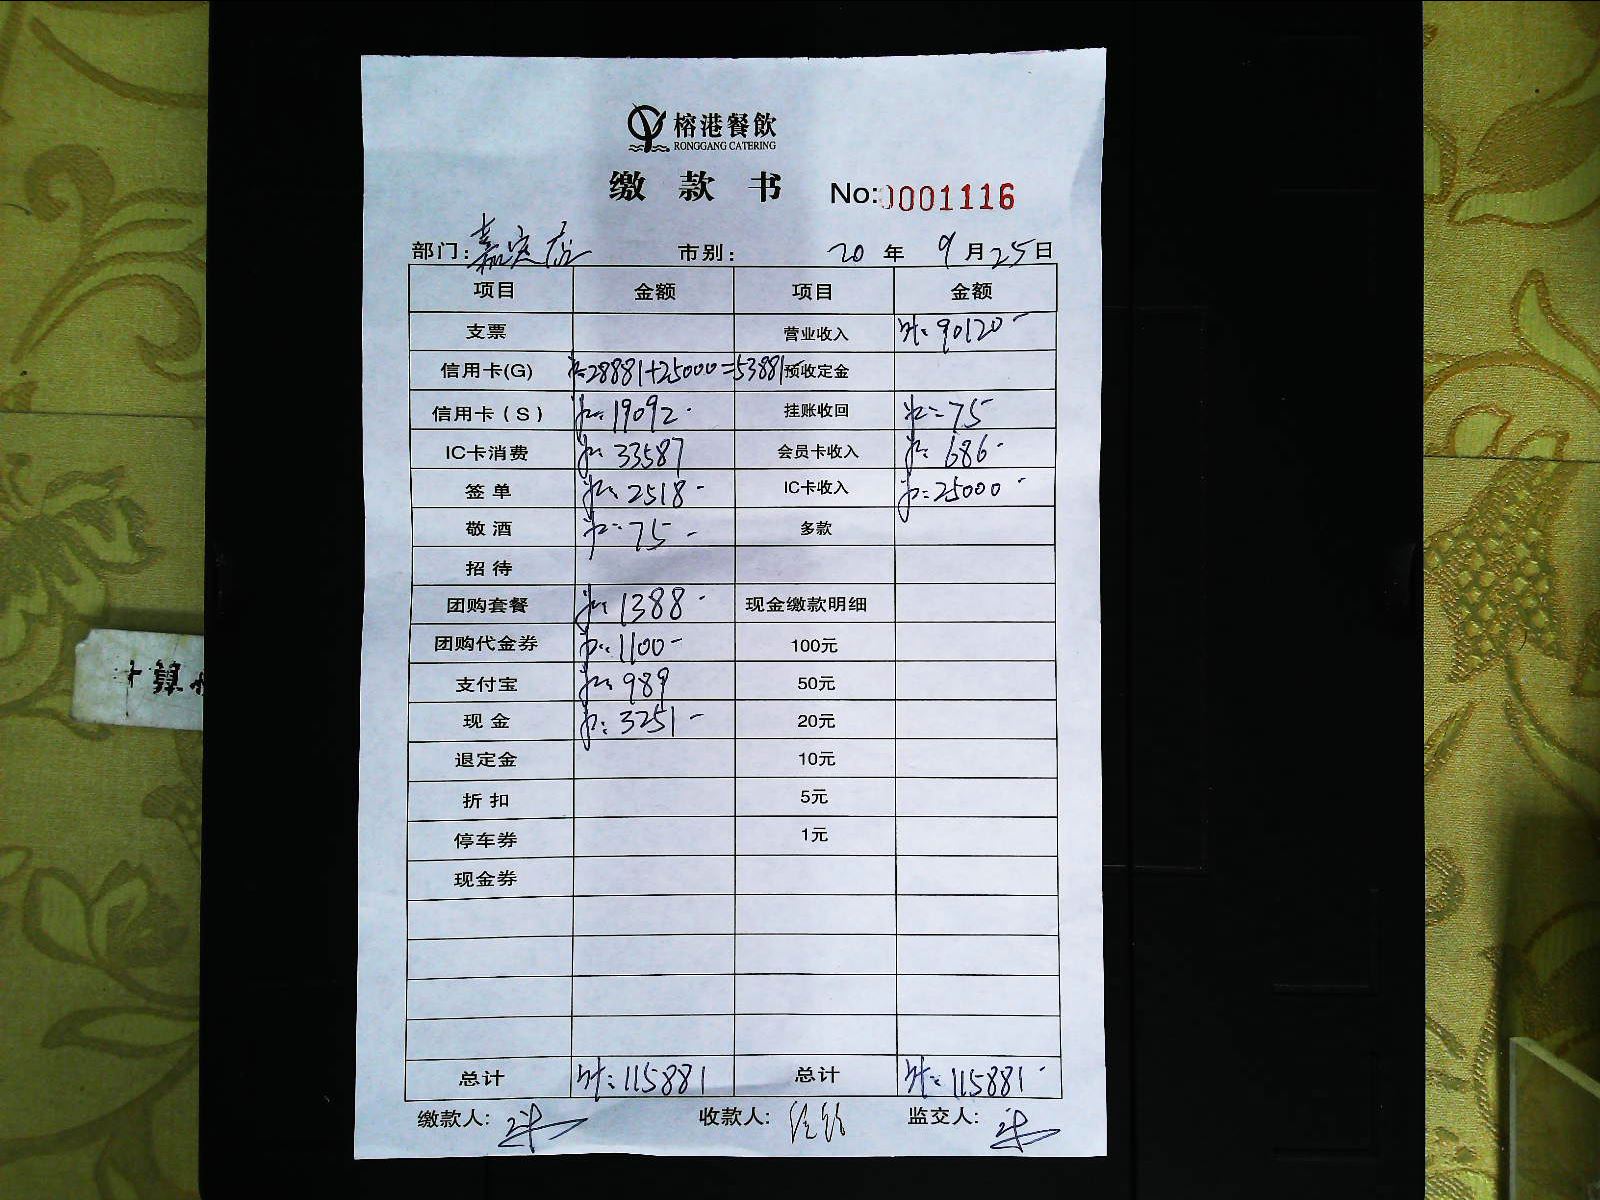 榕港餐飲
RONGGANG CATERING
缴 款 书 No:0001116
部门: 嘉定店 市别: 20 年 9 月 25 日
项目 金额 项目 金额
支票 营业收入 计: 90120-
信用卡(G) 28881+25000=53881 预收定金
信用卡(S) 19092- 挂账收回 75
IC卡消费 33587 会员卡收入 686-
签单 2518- IC卡收入 25000-
敬酒 75- 多款
招待
团购套餐 1388- 现金缴款明细
团购代金券 1100- 100元
支付宝 989 50元
现金 3251- 20元
退定金 10元
折扣 5元
停车券 1元
现金券
总计 计: 115881 总计 计: 115881-
缴款人: 收款人: 监交人: